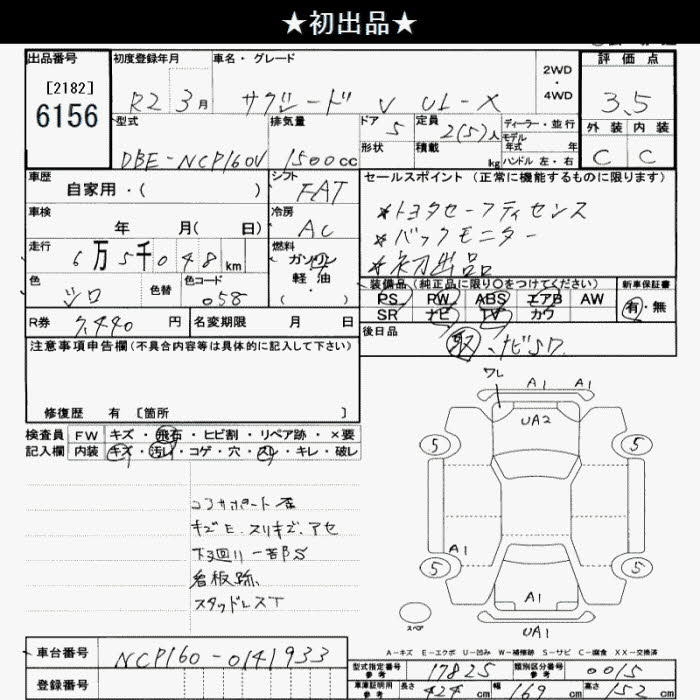 ★初出品★
出品番号 初度登録年月 車名・グレード 2WD・4WD 評価点
[2182]
6156 R2 3月 サクシード V UL-X 3.5
型式 排気量 ドア 5 定員 2(5)人 ディーラー・並行 外装 内装
形状 積載 kg モデル年式 年
DBE-NCP160V 1500cc ハンドル 左・右 C C
車歴 シフト セールスポイント (正常に機能するものに限ります)
自家用・( ) FAT
車検 冷房 *トヨタセーフティセンス
年 月( 日) AC *バックモニター
走行 6万5千048km 燃料 ガソリン *初出品
色 シロ 色替 色コード 058 軽油 ・( )
装備品(純正品に限り○をつけてください) 新車保証書
PS PW ABS エアB AW 有・無
SR ナビ TV カワ
R券 7,440円 名変期限 月 日 後日品
取.ナビSD.
注意事項申告欄(不具合内容等は具体的に記入して下さい)
修復歴 有 [箇所 ]
検査員 FW キズ・飛石・ヒビ割・リペア跡・×要
記入欄 内装 キズ・汚れ・コゲ・穴・スレ・キレ・破レ
コアサポート歪
キズE.スリキズ.アセ
下廻り一部S
看板跡
スタッドレスT
ワレ A1 A1
UA2
5 5
A1
5 5
A1
スペア UA1
A-キズ E-エクボ U-凹み W-補修跡 S-サビ C-腐食 XX-交換済
車台番号 NCP160-0141933
型式指定番号 参考 17825 類別区分番号 参考 0015
登録番号
車庫証明用 参考 長さ 424cm 幅 169cm 高さ 152cm